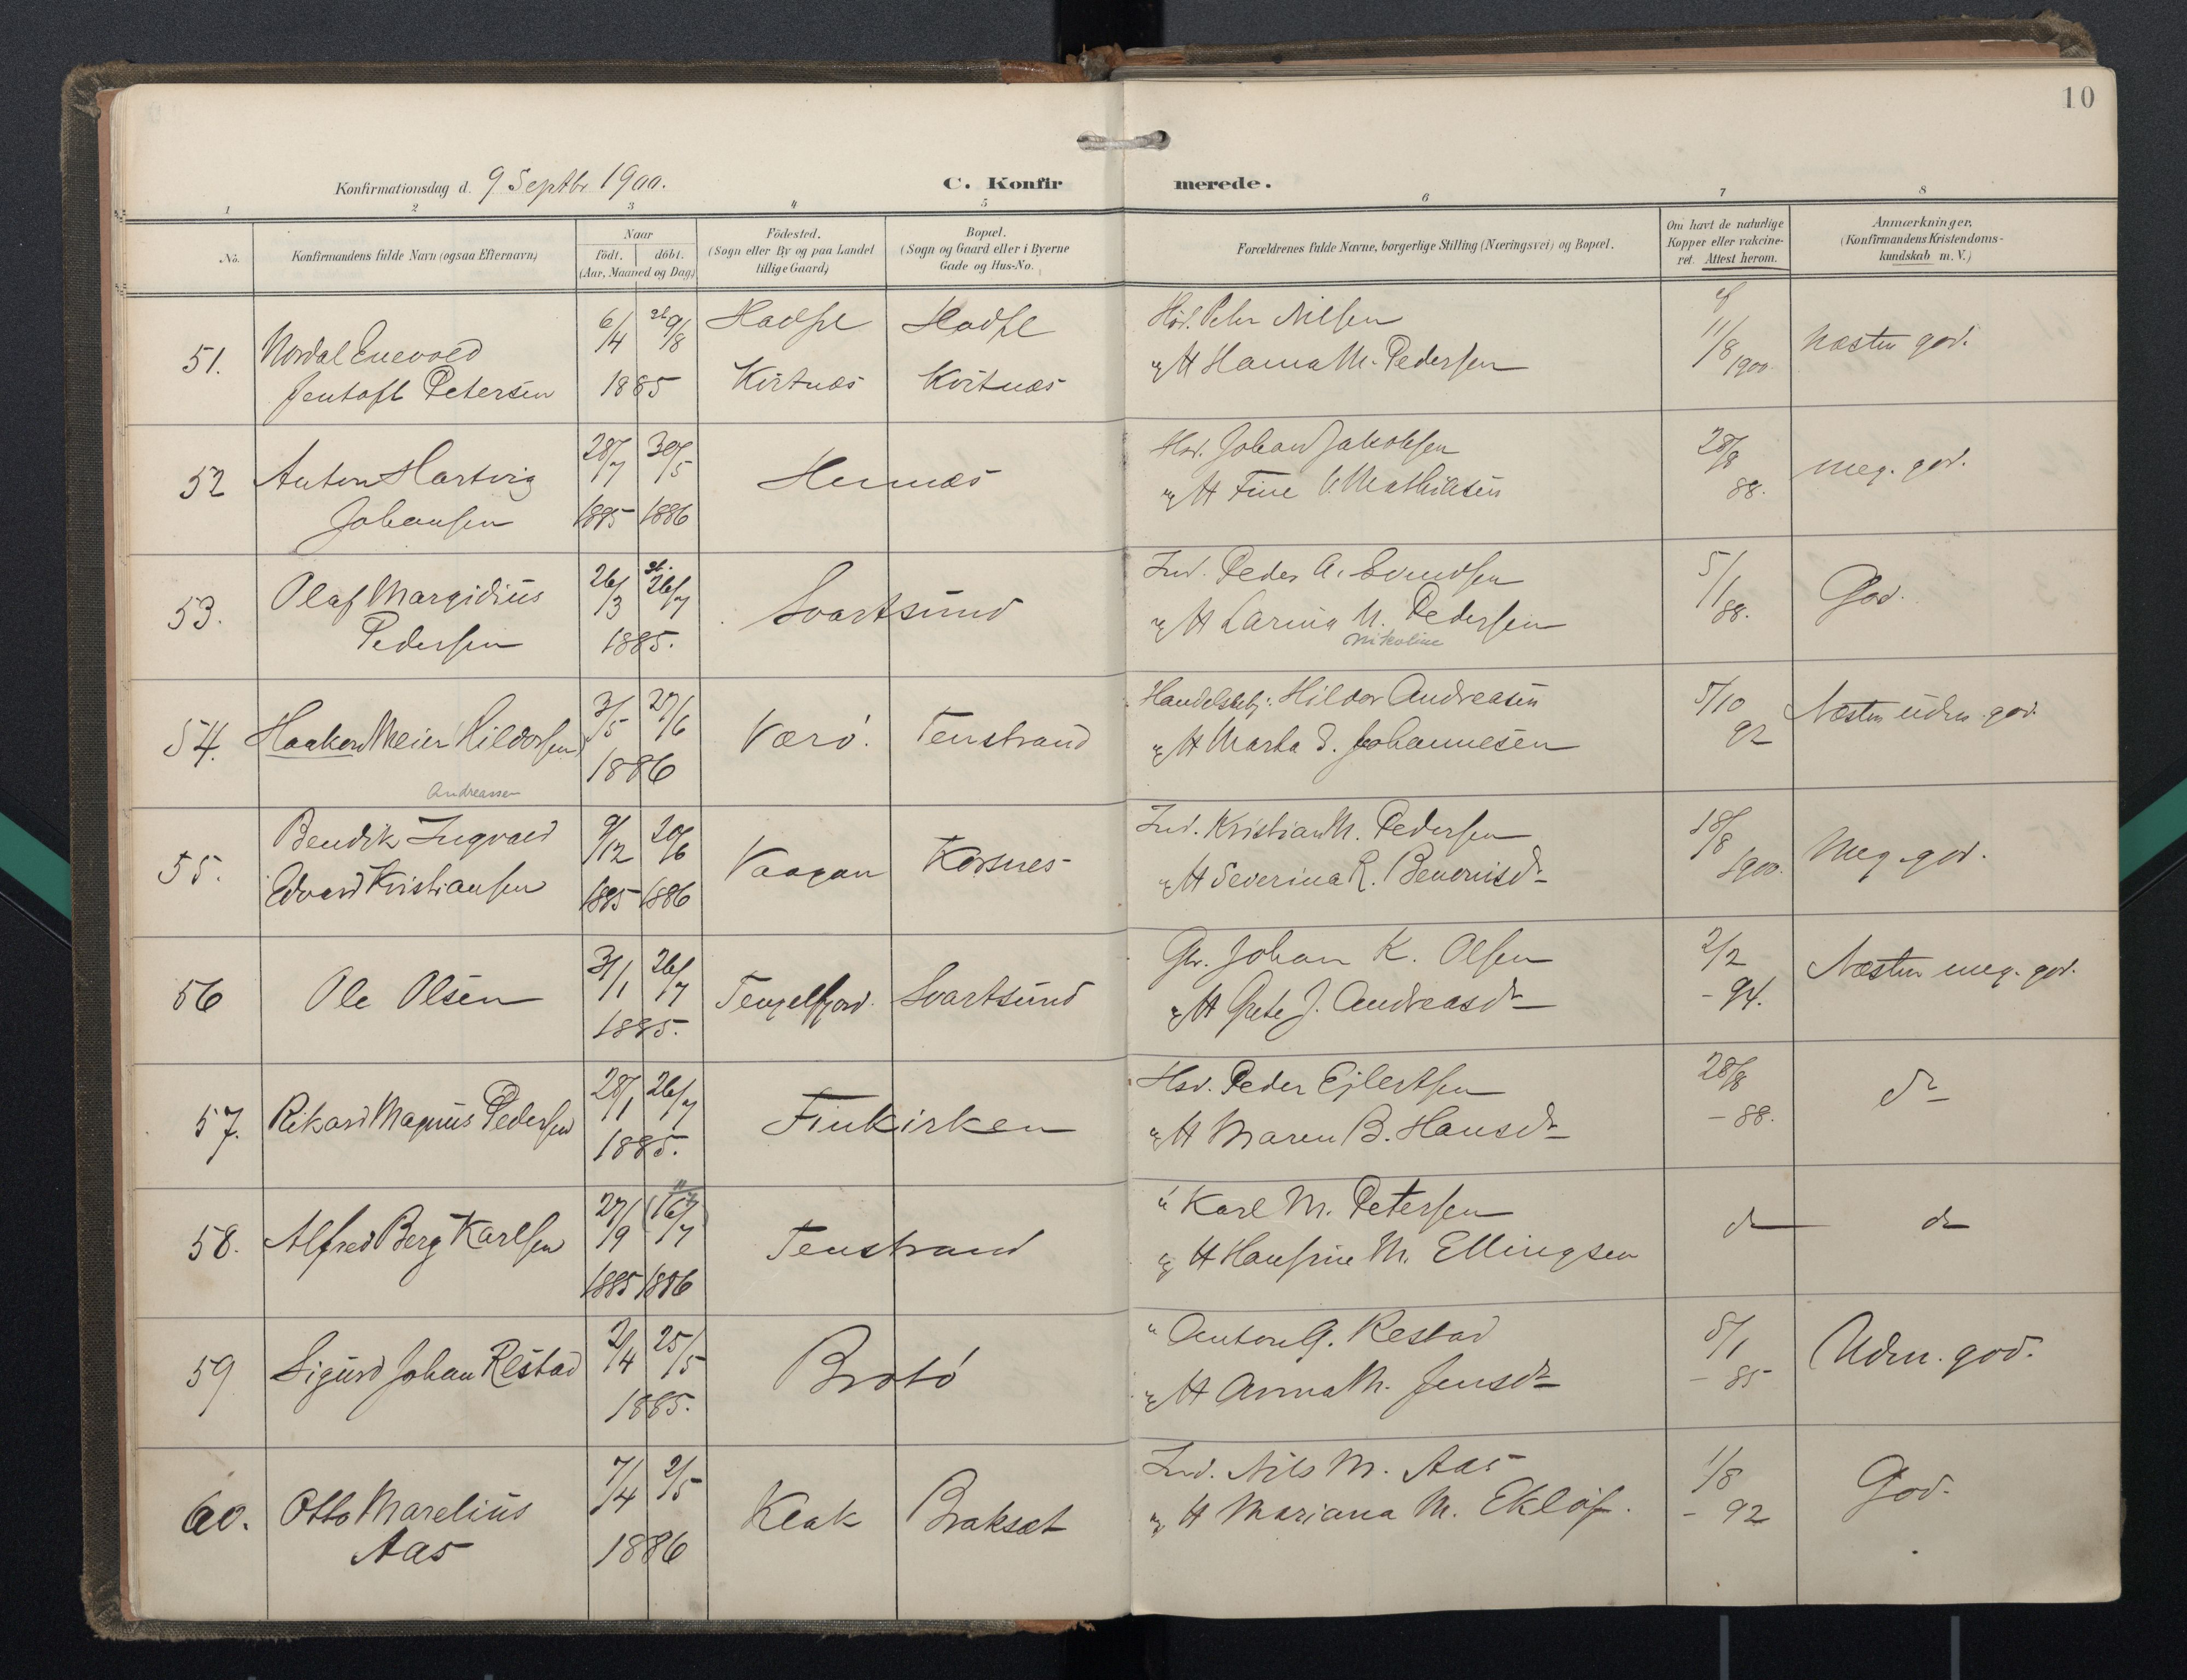 10
Konfirmationsdag d. 9 Septbr. 1900.
C. Konfirmerede.
1 2 3 4 5 6 7 8
No.
Konfirmandens fulde Navn (ogsaa Efternavn)
Naar
født. døbt.
(Aar, Maaned og Dag)
Fødested.
(Sogn eller By og paa Landet
tillige Gaard)
Bopæl.
(Sogn og Gaard eller i Byerne
Gade og Hus-No.)
Forældrenes fulde Navne, borgerlige Stilling (Næringsvei) og Bopæl.
Om havt de naturlige
Kopper eller vakcine-
ret. Attest herom.
Anmærkninger.
(Konfirmandens Kristendoms-
kundskab m. V.)
51. Nordal Enevold
Jentoft Petersen
6/4 9/8
1885
Hadsel Hadsel
Kvitnæs Kvitnæs
Peter Nilsen
og H Hanna M. Pedersen
11/8 1900
Næsten god.
52 Anton Hartvig
Johansen
28/7 30/5
1885 1886
Hennæs
Hsd. Johan Jakobsen
og H Tine Mathiasen
28/8
88.
meg. god.
53. Olaf Margidius
Pedersen
26/3 26/7
1885.
Svartsund
Ind. Peder A. Evendsen
og H Larina N. Pedersen
Nikoline
5/1
88.
God.
54. Haakon Meier Hildorsen
Andreassen
3/5 27/6
1886
Værö. Tenstrand
Handelsbetj. Hildor Andreasen
og H Marta S. Johannesen
5/10
92
Næsten udm. god.
55. Bendik Ingvald
Edvard Kristiansen
9/12 20/6
1885 1886
Vaagan Korsnes
Ind. Kristian M. Pedersen
og H Severina R. Benonisdr
18/8
1900.
Meg. god.
56 Ole Olsen
31/1 26/7
1885.
Tengelfjord. Svartsund
Johan K. Olsen
og H Grete J. Andreasdr
2/2
- 94.
Næsten meg. god.
57. Rikard Magnus Pedersen
28/1 26/7
1885.
Finkirken
Hsd. Peder Ejlertsen
og H Maren B. Hansdr
28/8
- 88.
do
58. Alfred Berg Karlsen
27/9 /7
1885 1886
Tenstrand
" Karl M. Petersen
og H Hansine M. Ellingsen
do do
59 Sigurd Johan Restad
2/4 25/5
1885.
Brotö
" Anton G. Restad
og H Anna M. Jensdr
5/1
- 85
Udm. god.
60. Otto Marelius
Aas
7/4 2/5
1886
Kleak Braksæt
Ind. Nils M. Aas
og H Mariana M. Eklöf.
1/8
- 92
God.